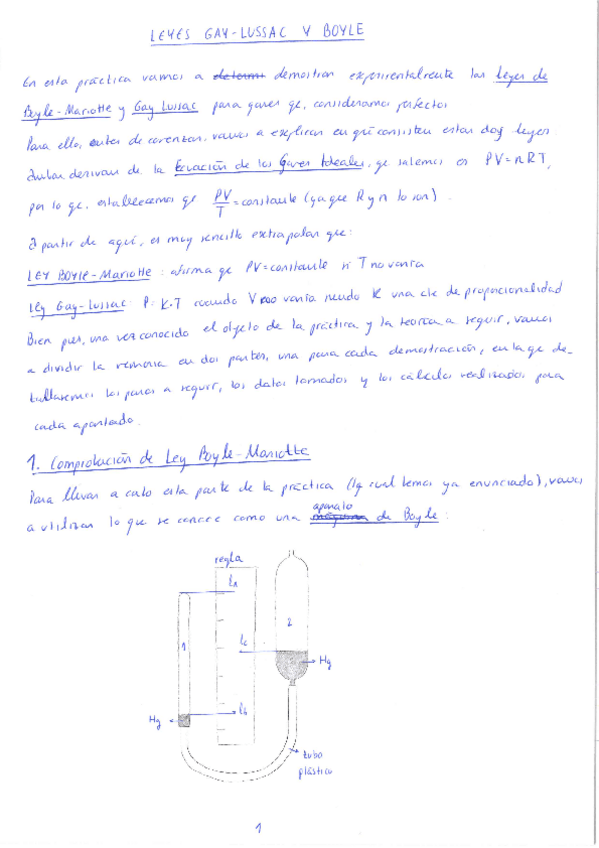 LEYES GAY-LUSSAC Y BOYLE
En esta práctica vamos a determi demostrar experimentalmente las Leyes de
Boyle-Mariotte y Gay Lussac para gases qe, consideramos perfectos
Para ello, antes de comenzar, vamos a explicar en qué consisten estas dos leyes
Ambas derivan de la Ecuación de los Gases Ideales, qe sabemos es PV=nRT,
por lo qe, establecemos qe PV/T = constante (ya que R y n lo son).
A partir de aquí, es muy sencillo extrapolar que:
LEY BOYLE-MARIOTTE: afirma qe PV=constante si T no varía
Ley Gay-Lussac: P=K·T cuando V no varía siendo K una cte de proporcionalidad
Bien pues, una vez conocido el objeto de la práctica y la teoría a seguir, vamos
a dividir la memoria en dos partes, una para cada demostración, en la qe de-
tallaremos los pasos a seguir, los datos tomados y los cálculos realizados para
cada apartado.
1. Comprobación de Ley Boyle-Mariotte
Para llevar a cabo esta parte de la práctica (la cual hemos ya enunciado), vamos
aparato
a utilizar lo que se conoce como una máquina de Boyle:
regla
1
2
Hg
Hg
tubo
plástico
1